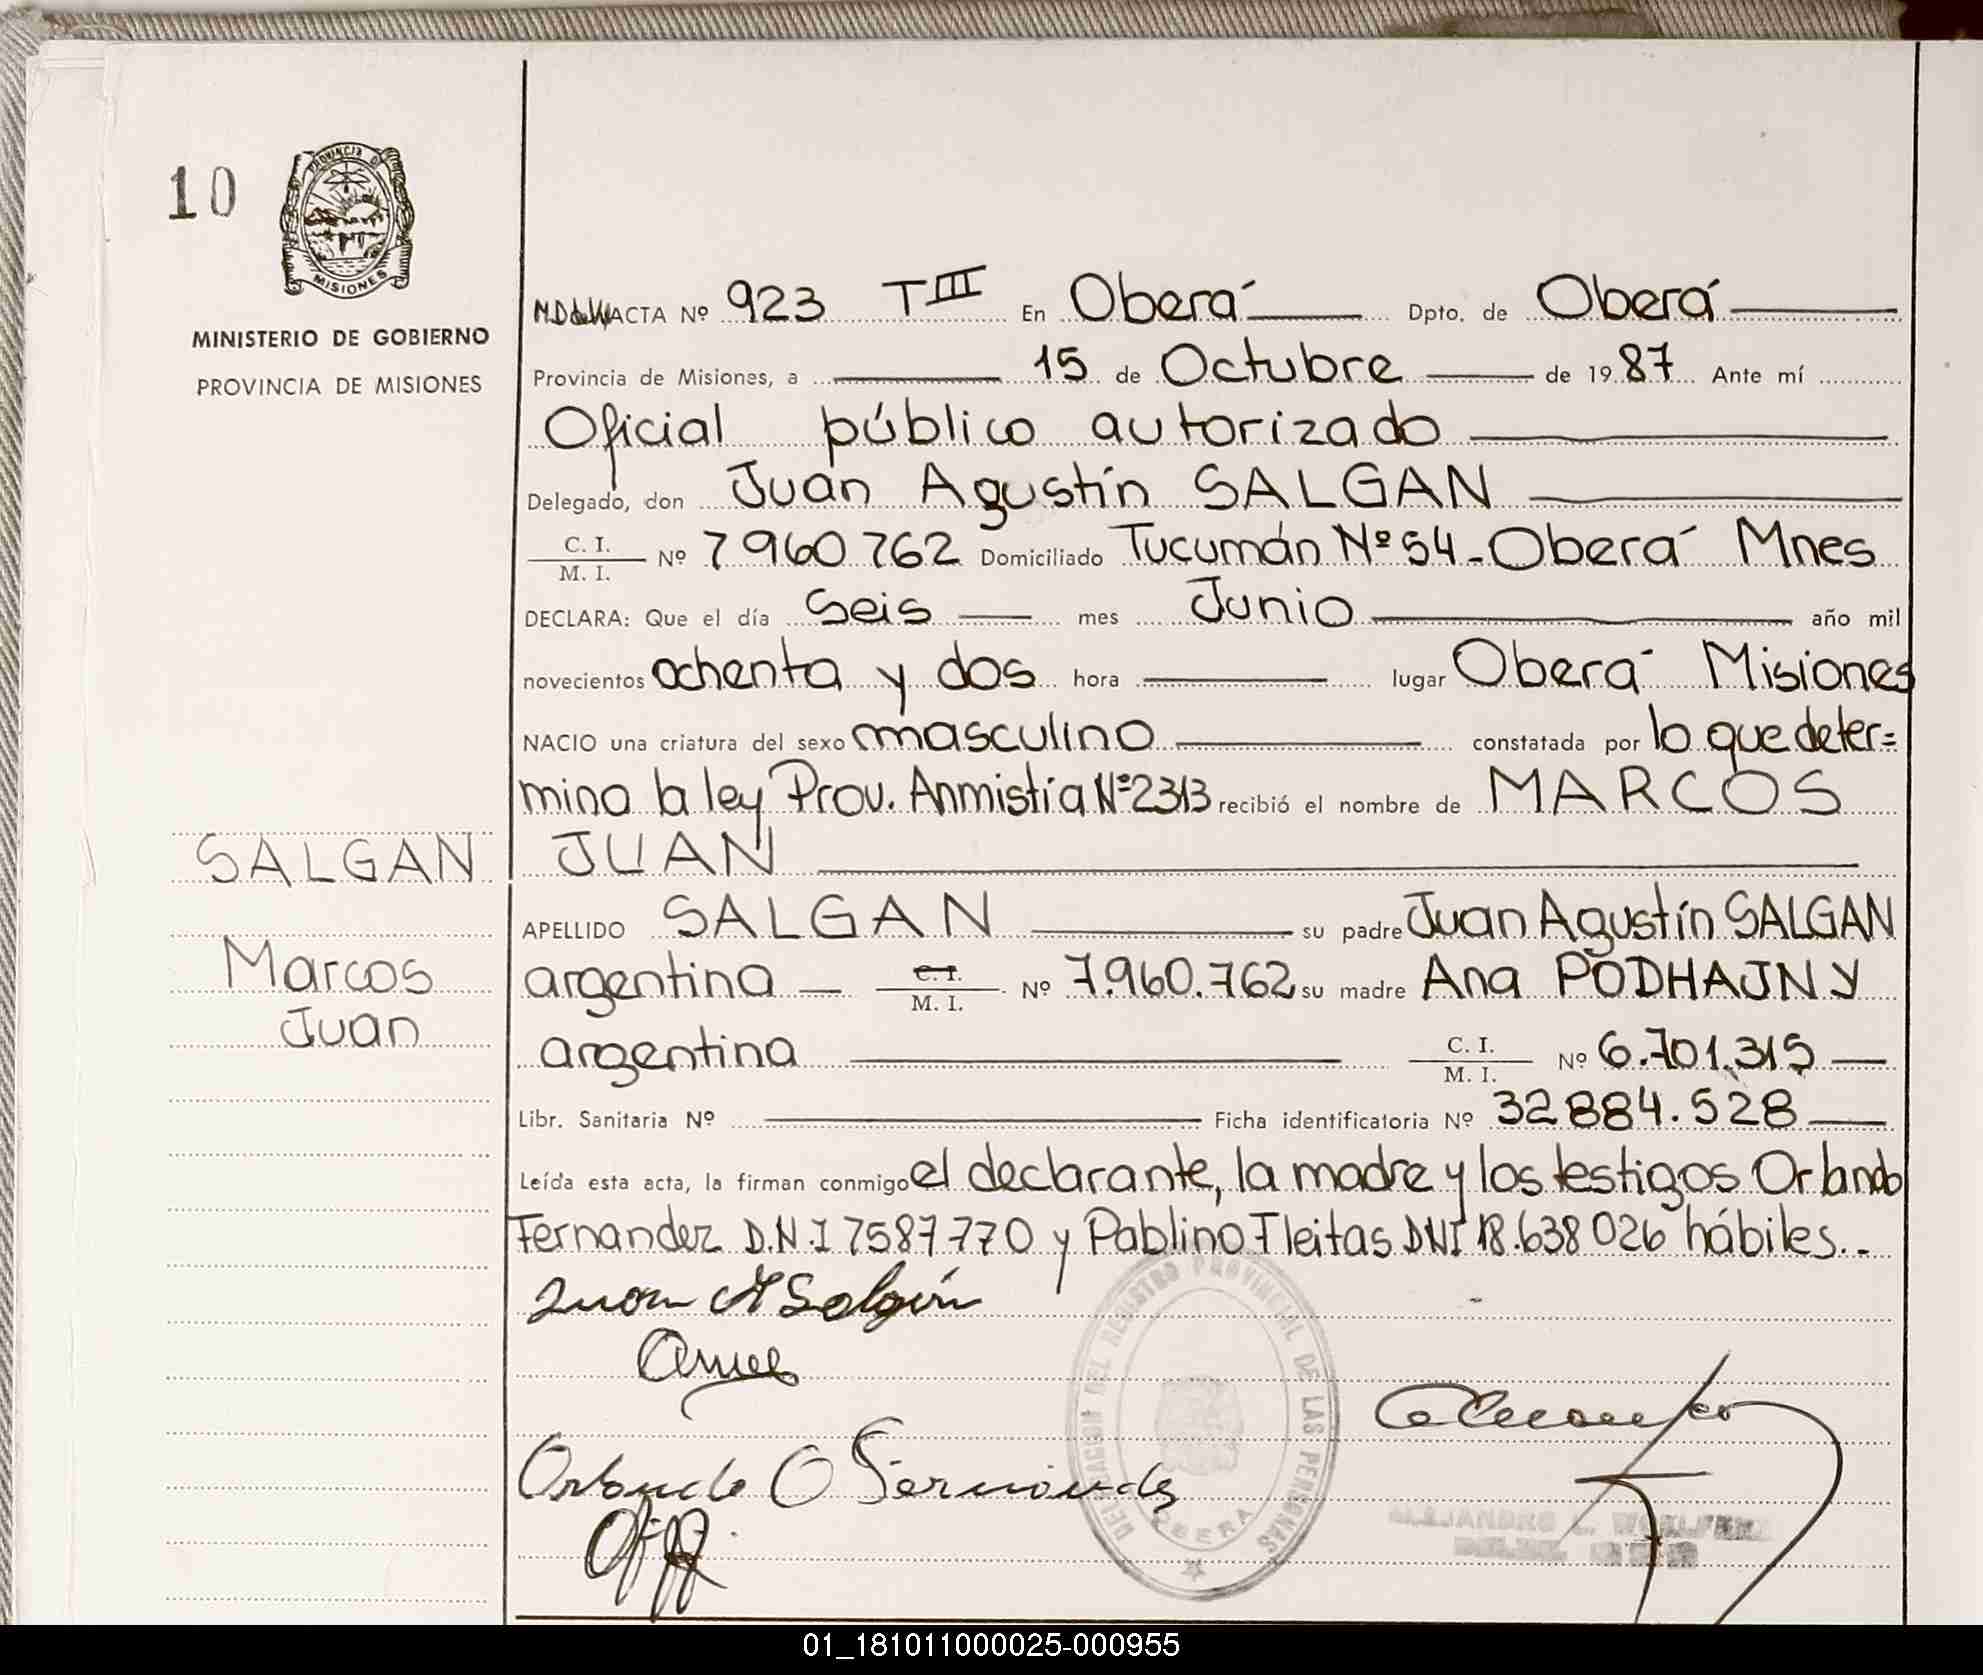 10
PROVINCIA D
MISIONES
MINISTERIO DE GOBIERNO
PROVINCIA DE MISIONES
ACTA Nº 923 TIII En Oberá Dpto. de Oberá
Provincia de Misiones, a 15 de Octubre de 1987 Ante mí
Oficial público autorizado
Delegado, don Juan Agustín SALGAN
C. I. / M. I. Nº 7960762 Domiciliado Tucumán Nº 54-Oberá Mnes
DECLARA: Que el día Seis mes Junio año mil
novecientos ochenta y dos hora lugar Oberá Misiones
NACIO una criatura del sexo masculino constatada por lo que deter=
mina la ley Prov. Anmistia Nº 2313 recibió el nombre de MARCOS
JUAN
SALGAN
APELLIDO SALGAN su padre Juan Agustín SALGAN
Marcos
argentina C. I. / M. I. Nº 7.960.762 su madre Ana PODHAJNY
Juan
argentina C. I. / M. I. Nº 6.701.315
Libr. Sanitaria Nº Ficha identificatoria Nº 32884.528
Leída esta acta, la firman conmigo el declarante, la madre y los testigos Orlando
Fernandez D.N.I 7587770 y Pablino Fleitas DNI 18.638026 hábiles..
Juan A Salgán
Orlando O Fernández
DELEGACION DEL REGISTRO PROVINCIAL DE LAS PERSONAS
OBERA
ALEJANDRO L.
01_181011000025-000955